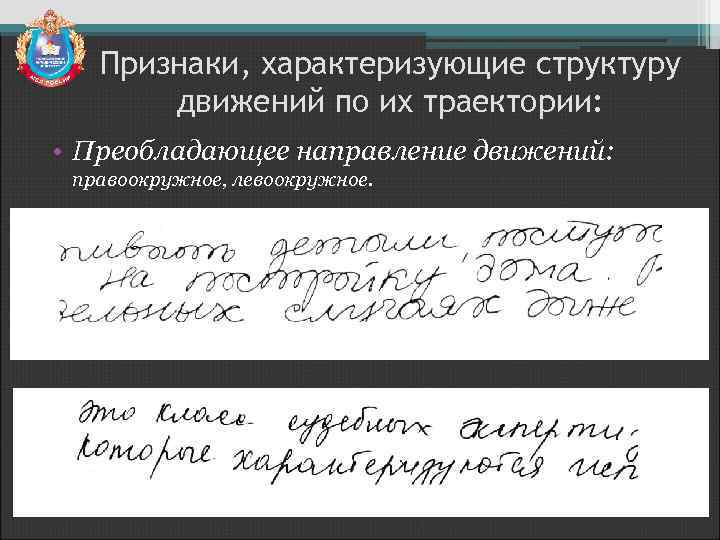 Признаки, характеризующие структуру
движений по их траектории:
• Преобладающее направление движений:
правоокружное, левоокружное.
детали
на постройку дома.
ельных случаях даже
это класс судебных эксперти
которые характеризуются исп
МВД РОССИИ